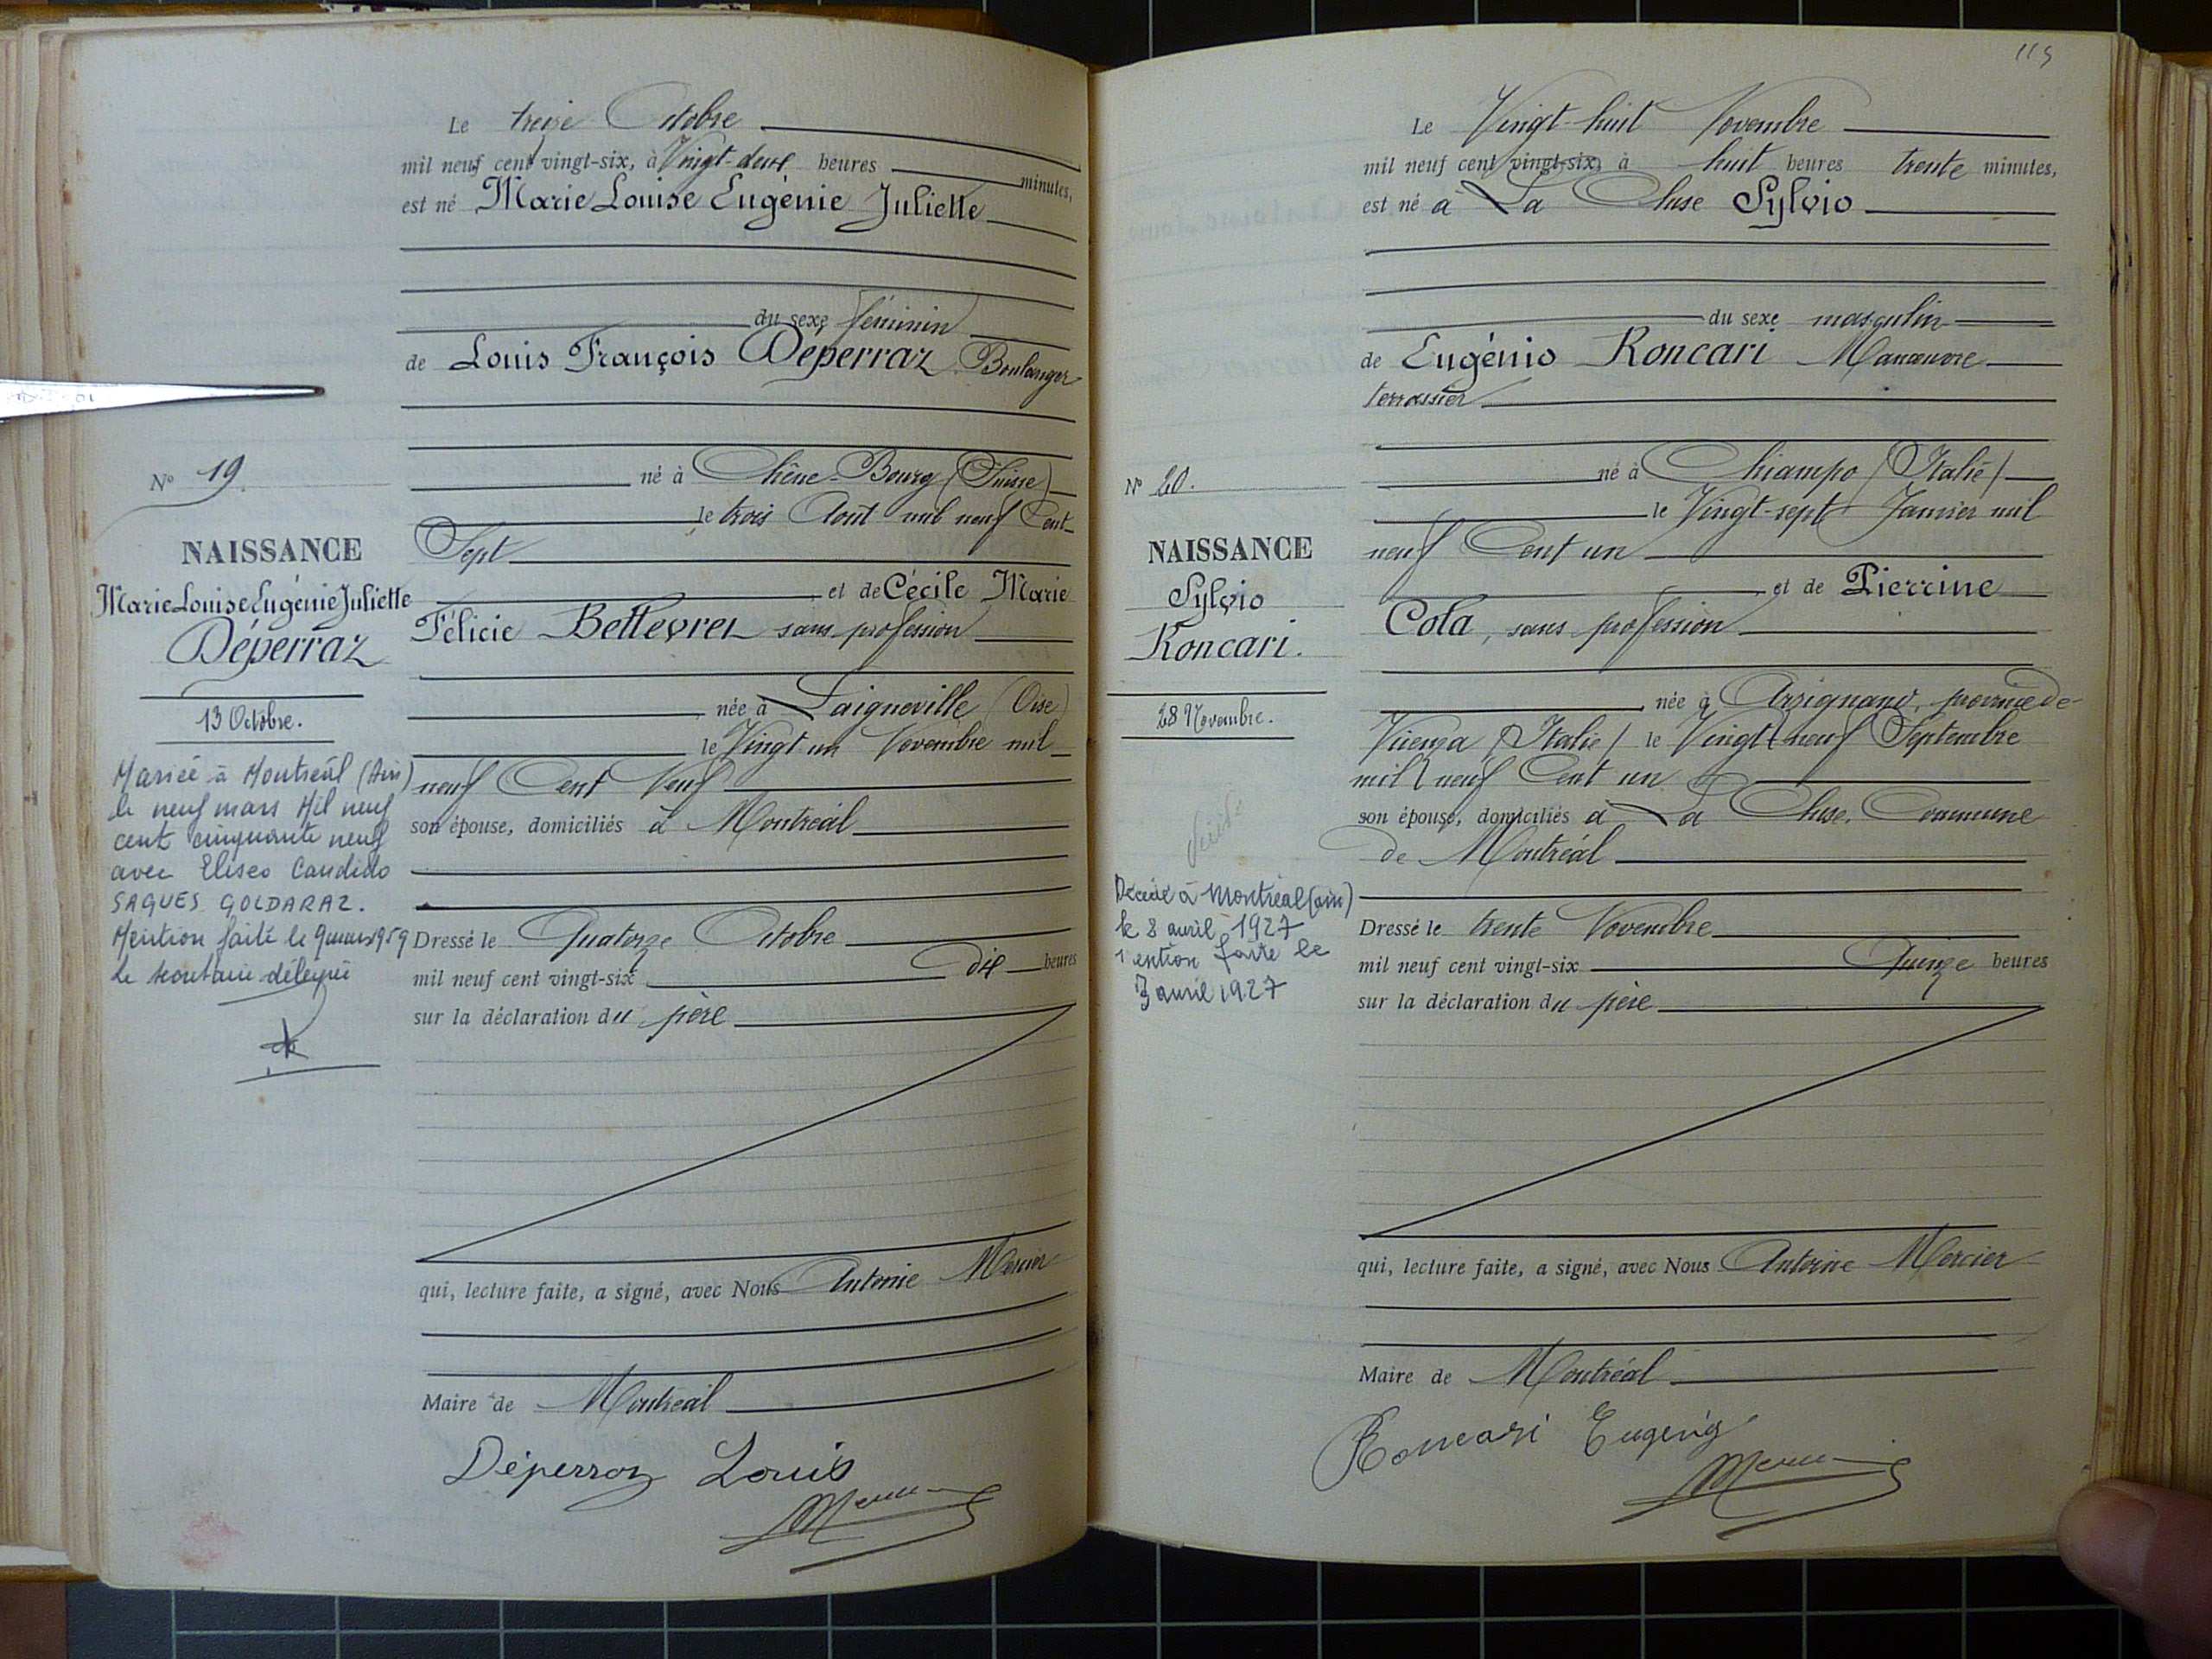 Le treize Octobre
mil neuf cent vingt-six, à Vingt-deux heures minutes,
est né Marie Louise Eugénie Juliette
du sexe féminin
de Louis François Déperraz Boulanger
né à Chêne-Bourg (Suisse)
le trois Août mil neuf Cent
Sept
et de Cécile Marie
Félicie Bettevrez sans profession
née à Laigneville (Oise)
le Vingt un Novembre mil
neuf Cent Neuf
son épouse, domiciliés à Montréal
Dressé le Quatorze Octobre
mil neuf cent vingt-six dix heures
sur la déclaration du père
qui, lecture faite, a signé, avec Nous Antoine Mercier
Maire de Montréal
Déperraz Louis
Mercier
N° 19.
NAISSANCE
Marie Louise Eugénie Juliette
Déperraz
13 Octobre.
Mariée à Montréal (Ain)
le neuf mars Mil neuf
cent cinquante neuf
avec Eliseo Candido
SAGUES GOLDARAZ.
Mention faite le 9 mars 1959
le secrétaire délégué
115
Le Vingt-huit Novembre
mil neuf cent vingt-six, à huit heures trente minutes,
est né à La Cluse Sylvio
du sexe masculin
de Eugénio Roncari Manœuvre
terrassier
né à Chiampo (Italie)
le Vingt-sept Janvier mil
neuf Cent un
et de Pierrine
Cola, sans profession
née à Arzignano, province de
Vicenza (Italie) le Vingt neuf Septembre
mil neuf Cent un
son épouse, domiciliés à La Cluse, Commune
de Montréal
Dressé le trente Novembre
mil neuf cent vingt-six Quinze heures
sur la déclaration du père
qui, lecture faite, a signé, avec Nous Antoine Mercier
Maire de Montréal
Roncari Eugenio
Mercier
N° 20.
NAISSANCE
Sylvio
Roncari.
28 Novembre.
Décédé à Montréal (ain)
le 8 avril 1927
mention faite le
avril 1927